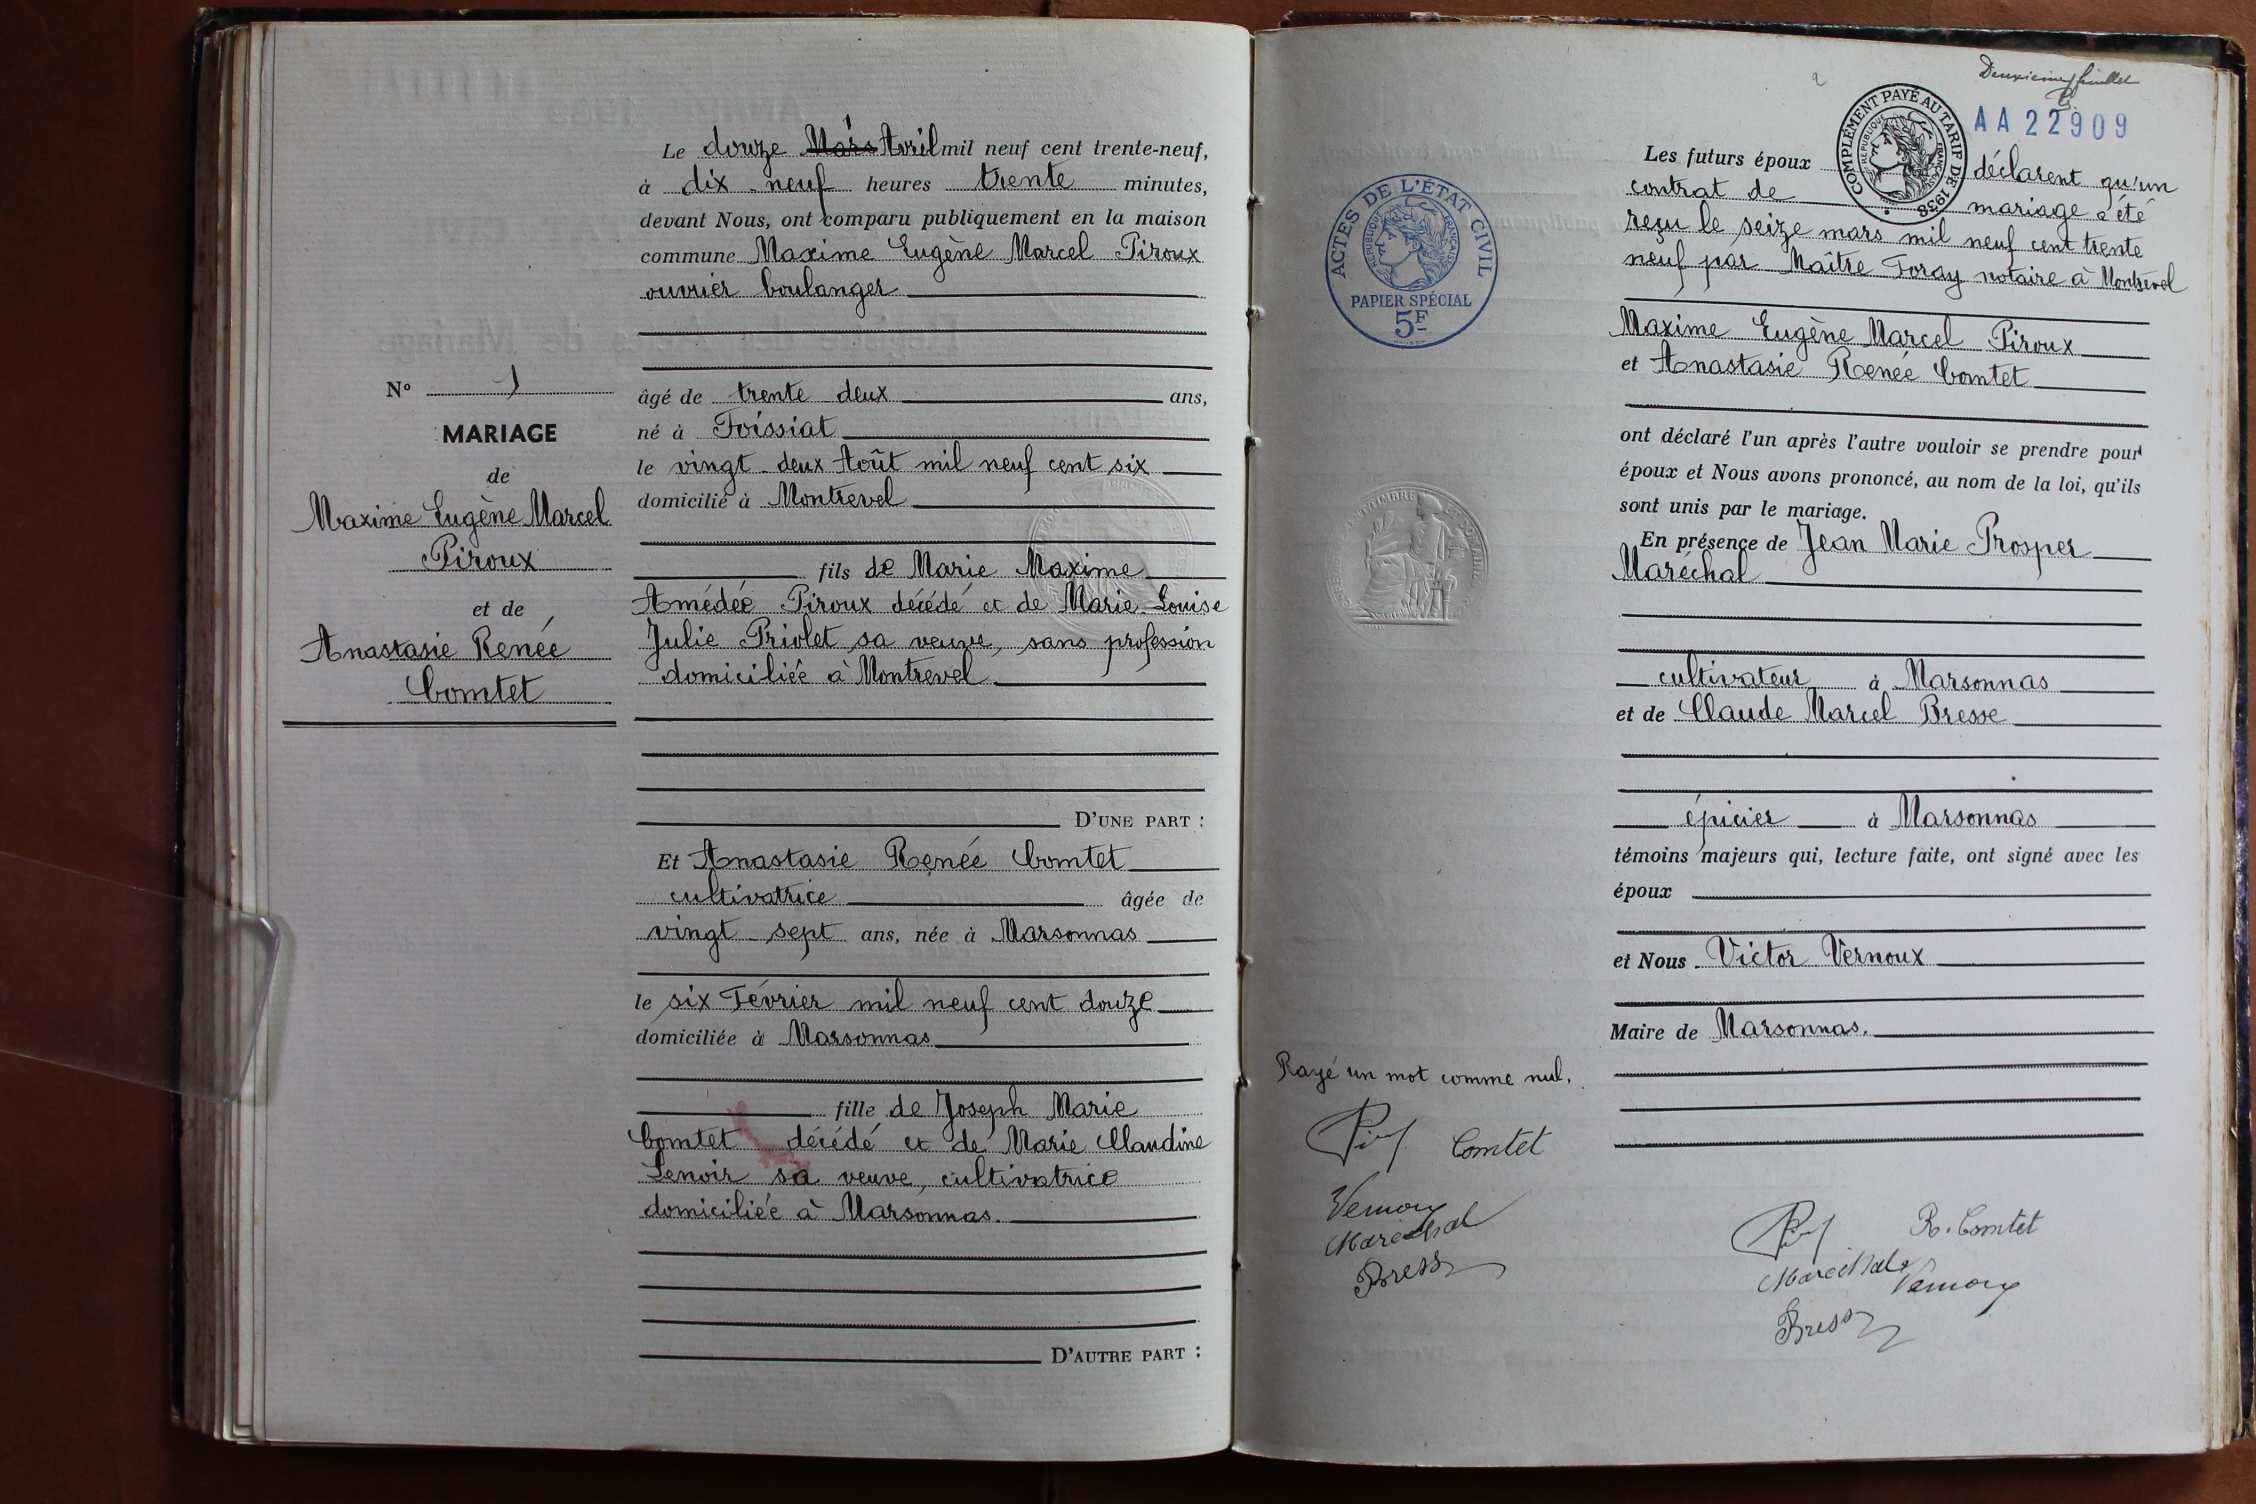 N° 1
MARIAGE
de
Maxime Eugène Marcel
Piroux
et de
Anastasie Renée
Comtet
Le douze Mars Avril mil neuf cent trente-neuf,
à dix neuf heures trente minutes,
devant Nous, ont comparu publiquement en la maison
commune Maxime Eugène Marcel Piroux
ouvrier boulanger
âgé de trente deux ans,
né à Foissiat
le vingt-deux Août mil neuf cent six
domicilié à Montrevel
fils de Marie Maxime
Amédée Piroux décédé et de Marie-Louise
Julie Priolet sa veuve, sans profession
domiciliée à Montrevel
D'UNE PART :
Et Anastasie Renée Comtet
cultivatrice âgée de
vingt-sept ans, née à Marsonnas
le six Février mil neuf cent douze
domiciliée à Marsonnas
fille de Joseph Marie
Comtet décédé et de Marie Claudine
Lenoir sa veuve, cultivatrice
domiciliée à Marsonnas.
D'AUTRE PART :
Deuxième feuillet
AA 22909
COMPLÉMENT PAYÉ AU TARIF DE 1938
RÉPUBLIQUE FRANÇAISE
ACTES DE L'ÉTAT CIVIL
RÉPUBLIQUE FRANÇAISE
PAPIER SPÉCIAL
5F
Les futurs époux déclarent qu'un
contrat de mariage a été
reçu le seize mars mil neuf cent trente
neuf par Maître Foray notaire à Montrevel
Maxime Eugène Marcel Piroux
et Anastasie Renée Comtet
ont déclaré l'un après l'autre vouloir se prendre pour
époux et Nous avons prononcé, au nom de la loi, qu'ils
sont unis par le mariage.
En présence de Jean Marie Prosper
Maréchal
cultivateur à Marsonnas
et de Claude Marcel Bresse
épicier à Marsonnas
témoins majeurs qui, lecture faite, ont signé avec les
époux
et Nous Victor Vernoux
Maire de Marsonnas.
Rayé un mot comme nul.
Comtet
Vernoux
Maréchal
Bresse
R. Comtet
Maréchal
Vernoux
Bresse